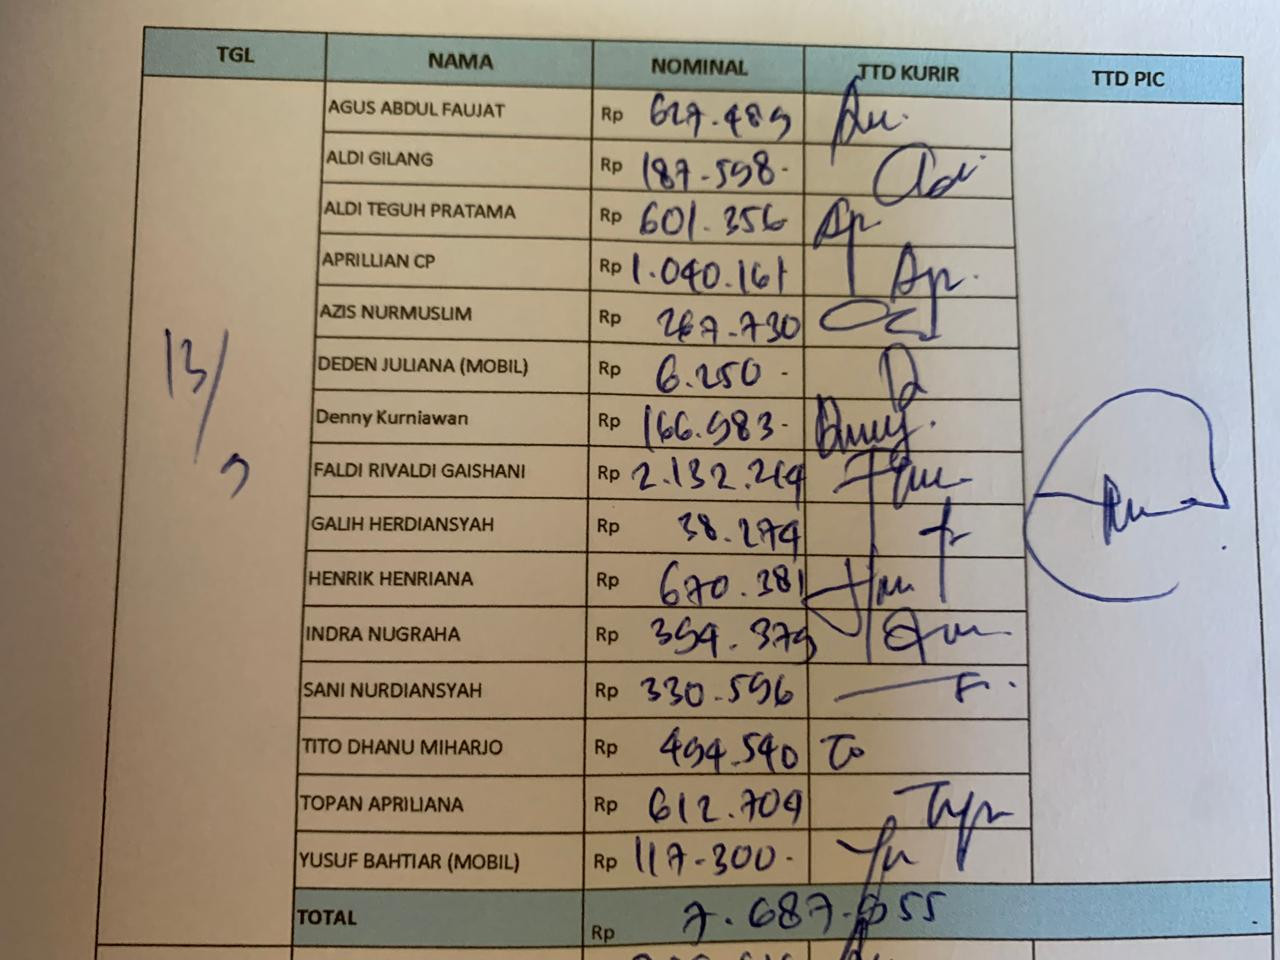 TGL NAMA NOMINAL TTD KURIR TTD PIC
13/9
AGUS ABDUL FAUJAT Rp 627.489
ALDI GILANG Rp 187.598-
ALDI TEGUH PRATAMA Rp 601.356
APRILLIAN CP Rp 1.040.161
AZIS NURMUSLIM Rp 267.730
DEDEN JULIANA (MOBIL) Rp 6.250-
Denny Kurniawan Rp 166.983-
FALDI RIVALDI GAISHANI Rp 2.132.214
GALIH HERDIANSYAH Rp 38.274
HENRIK HENRIANA Rp 670.381
INDRA NUGRAHA Rp 394.379
SANI NURDIANSYAH Rp 330.596
TITO DHANU MIHARJO Rp 494.540
TOPAN APRILIANA Rp 612.704
YUSUF BAHTIAR (MOBIL) Rp 117.300-
TOTAL Rp 7.687.955